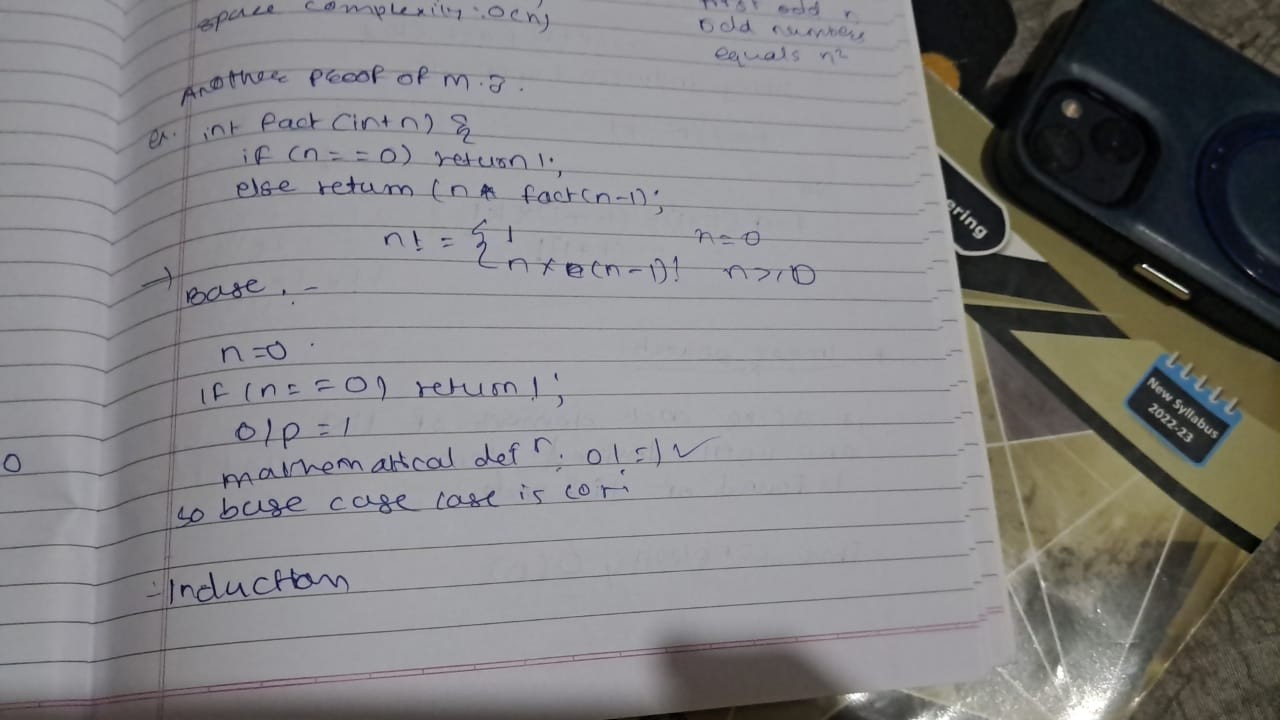 space complexity: O(n)
first odd n
odd numbers
equals n²
Another proof of M.I.
ex. int fact (int n) {
if (n == 0) return 1;
else return (n * fact(n-1);
n! = { 1 n=0
n × (n-1)! n>,0
→ Base :-
n=0
if (n == 0) return 1;
o/p = 1
mathematical defn: 0! = 1 ✓
so base case case is cor
:- Induction
0
ering
New Syllabus
2022-23